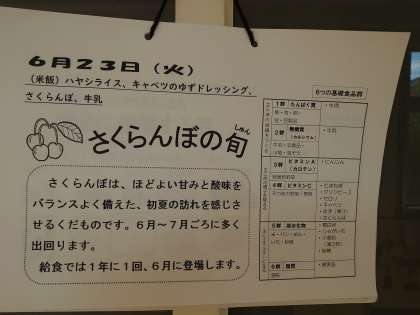 ６月２３日（火）
（米飯）ハヤシライス、キャベツのゆずドレッシング、
さくらんぼ、牛乳
さくらんぼの旬
しゅん
さくらんぼは、ほどよい甘みと酸味を
バランスよく備えた、初夏の訪れを感じさ
せるくだものです。６月～７月ごろに多く
出回ります。
給食では１年に１回、６月に登場します。
６つの基礎食品群
１群 たんぱく質
２群 無機質
（カルシウム）
・牛乳
３群 ビタミンＡ
（カロテン）
・にんじん
４群 ビタミンＣ
・たまねぎ
・グリンピース
・セロリ
・キャベツ
・さくらんぼ
５群 炭水化物
・じゃがいも
６群 脂質